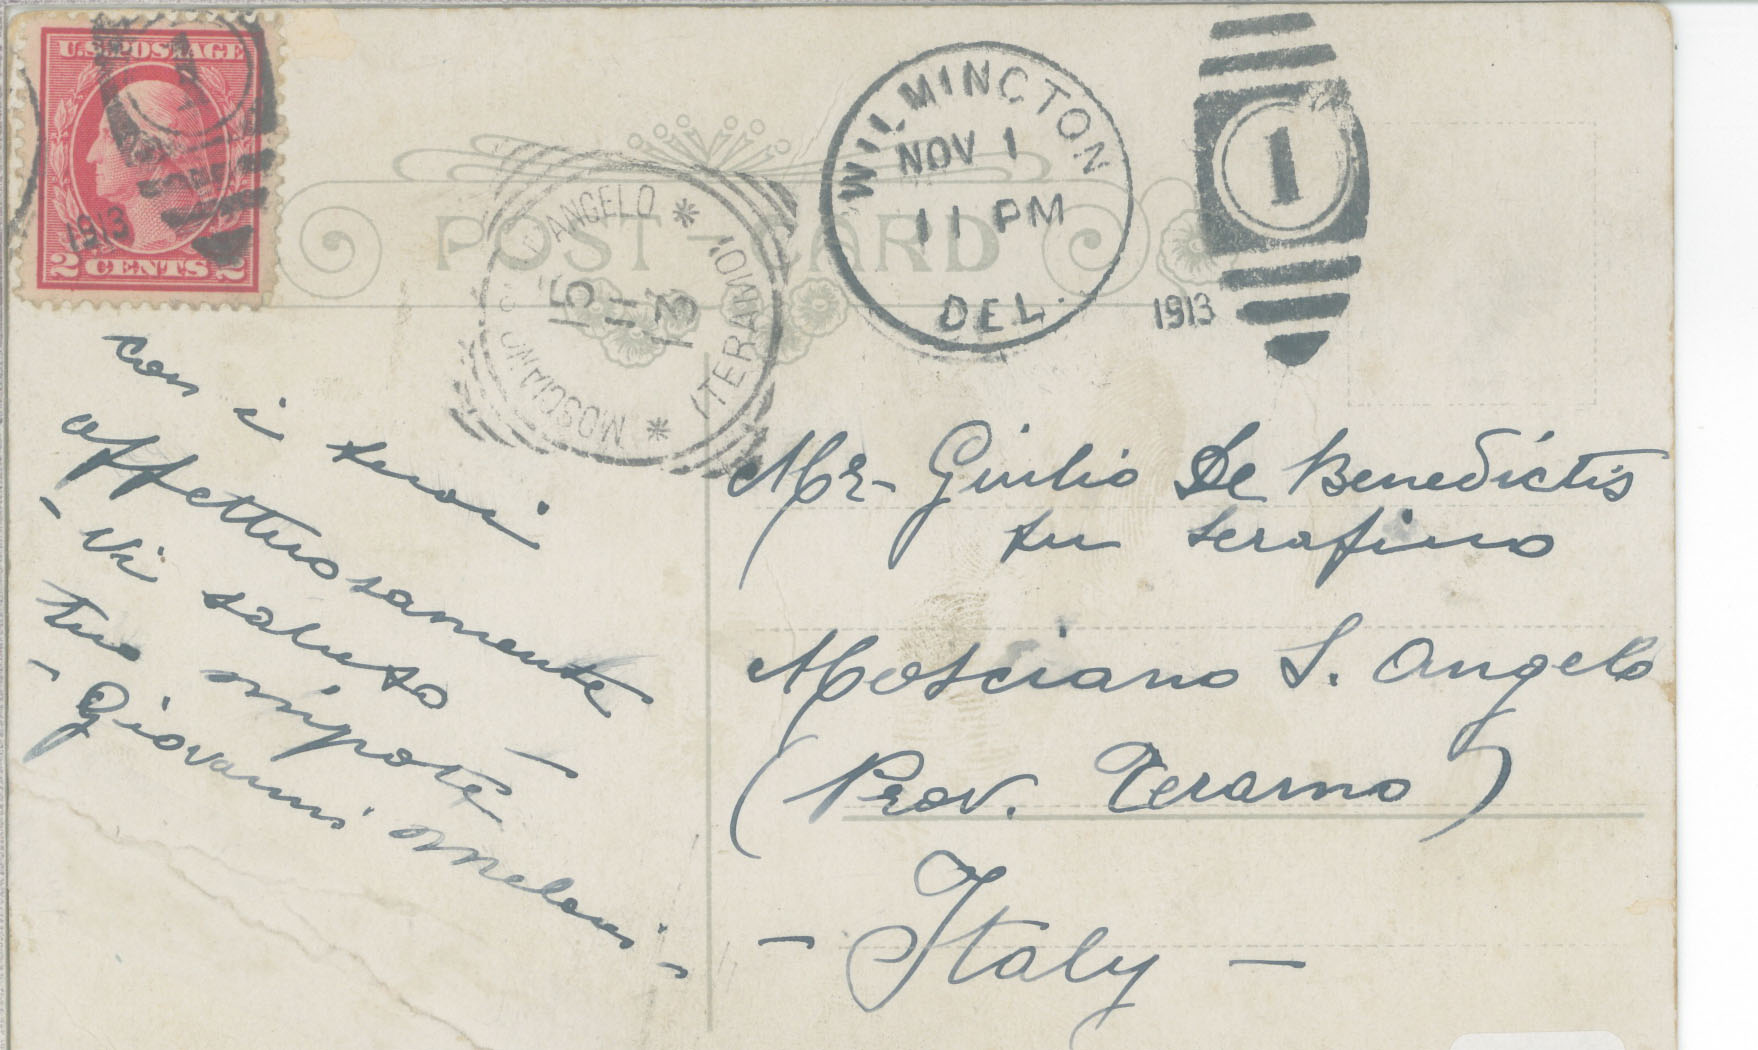 U.S. POSTAGE
1913
2 CENTS 2
POST CARD
MOSCIANO S. ANGELO * (TERAMO) *
15
11
13
WILMINGTON
NOV 1
11 PM
DEL.
1
1913
con i
affettuosamente
- Vi saluto
tuo nipote -
- Giovanni Meloni -
Mr- Giulio De Benedictis
fu Serafino
Mosciano S. Angelo
(Prov. Teramo)
- Italy -